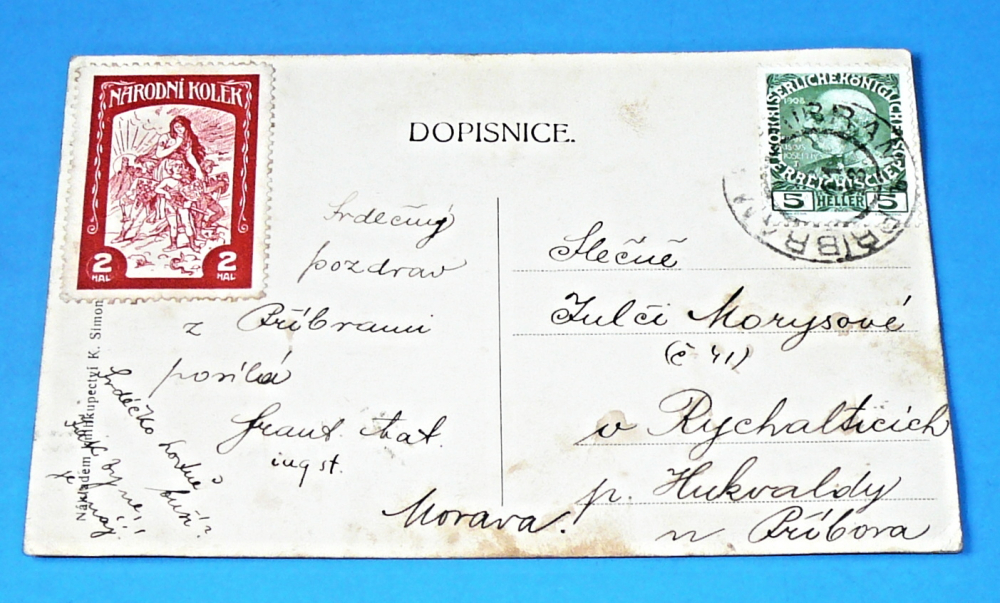 NÁRODNÍ KOLEK
2 HAL 2 HAL
DOPISNICE.
KAISERLICHE KÖNIGLICHE
ÖSTERREICHISCHE
1908
5 HELLER 5
PŘÍBRAM
Srdečný
pozdrav
z Příbrami
posílá
Frant. Mat.
ing st.
Slečně
Julči Morysové
(č 41)
v Rychalticích
p. Hukvaldy
n Příbora
Morava!
Nákladem knihkupectví K. Simon
Srdéčko